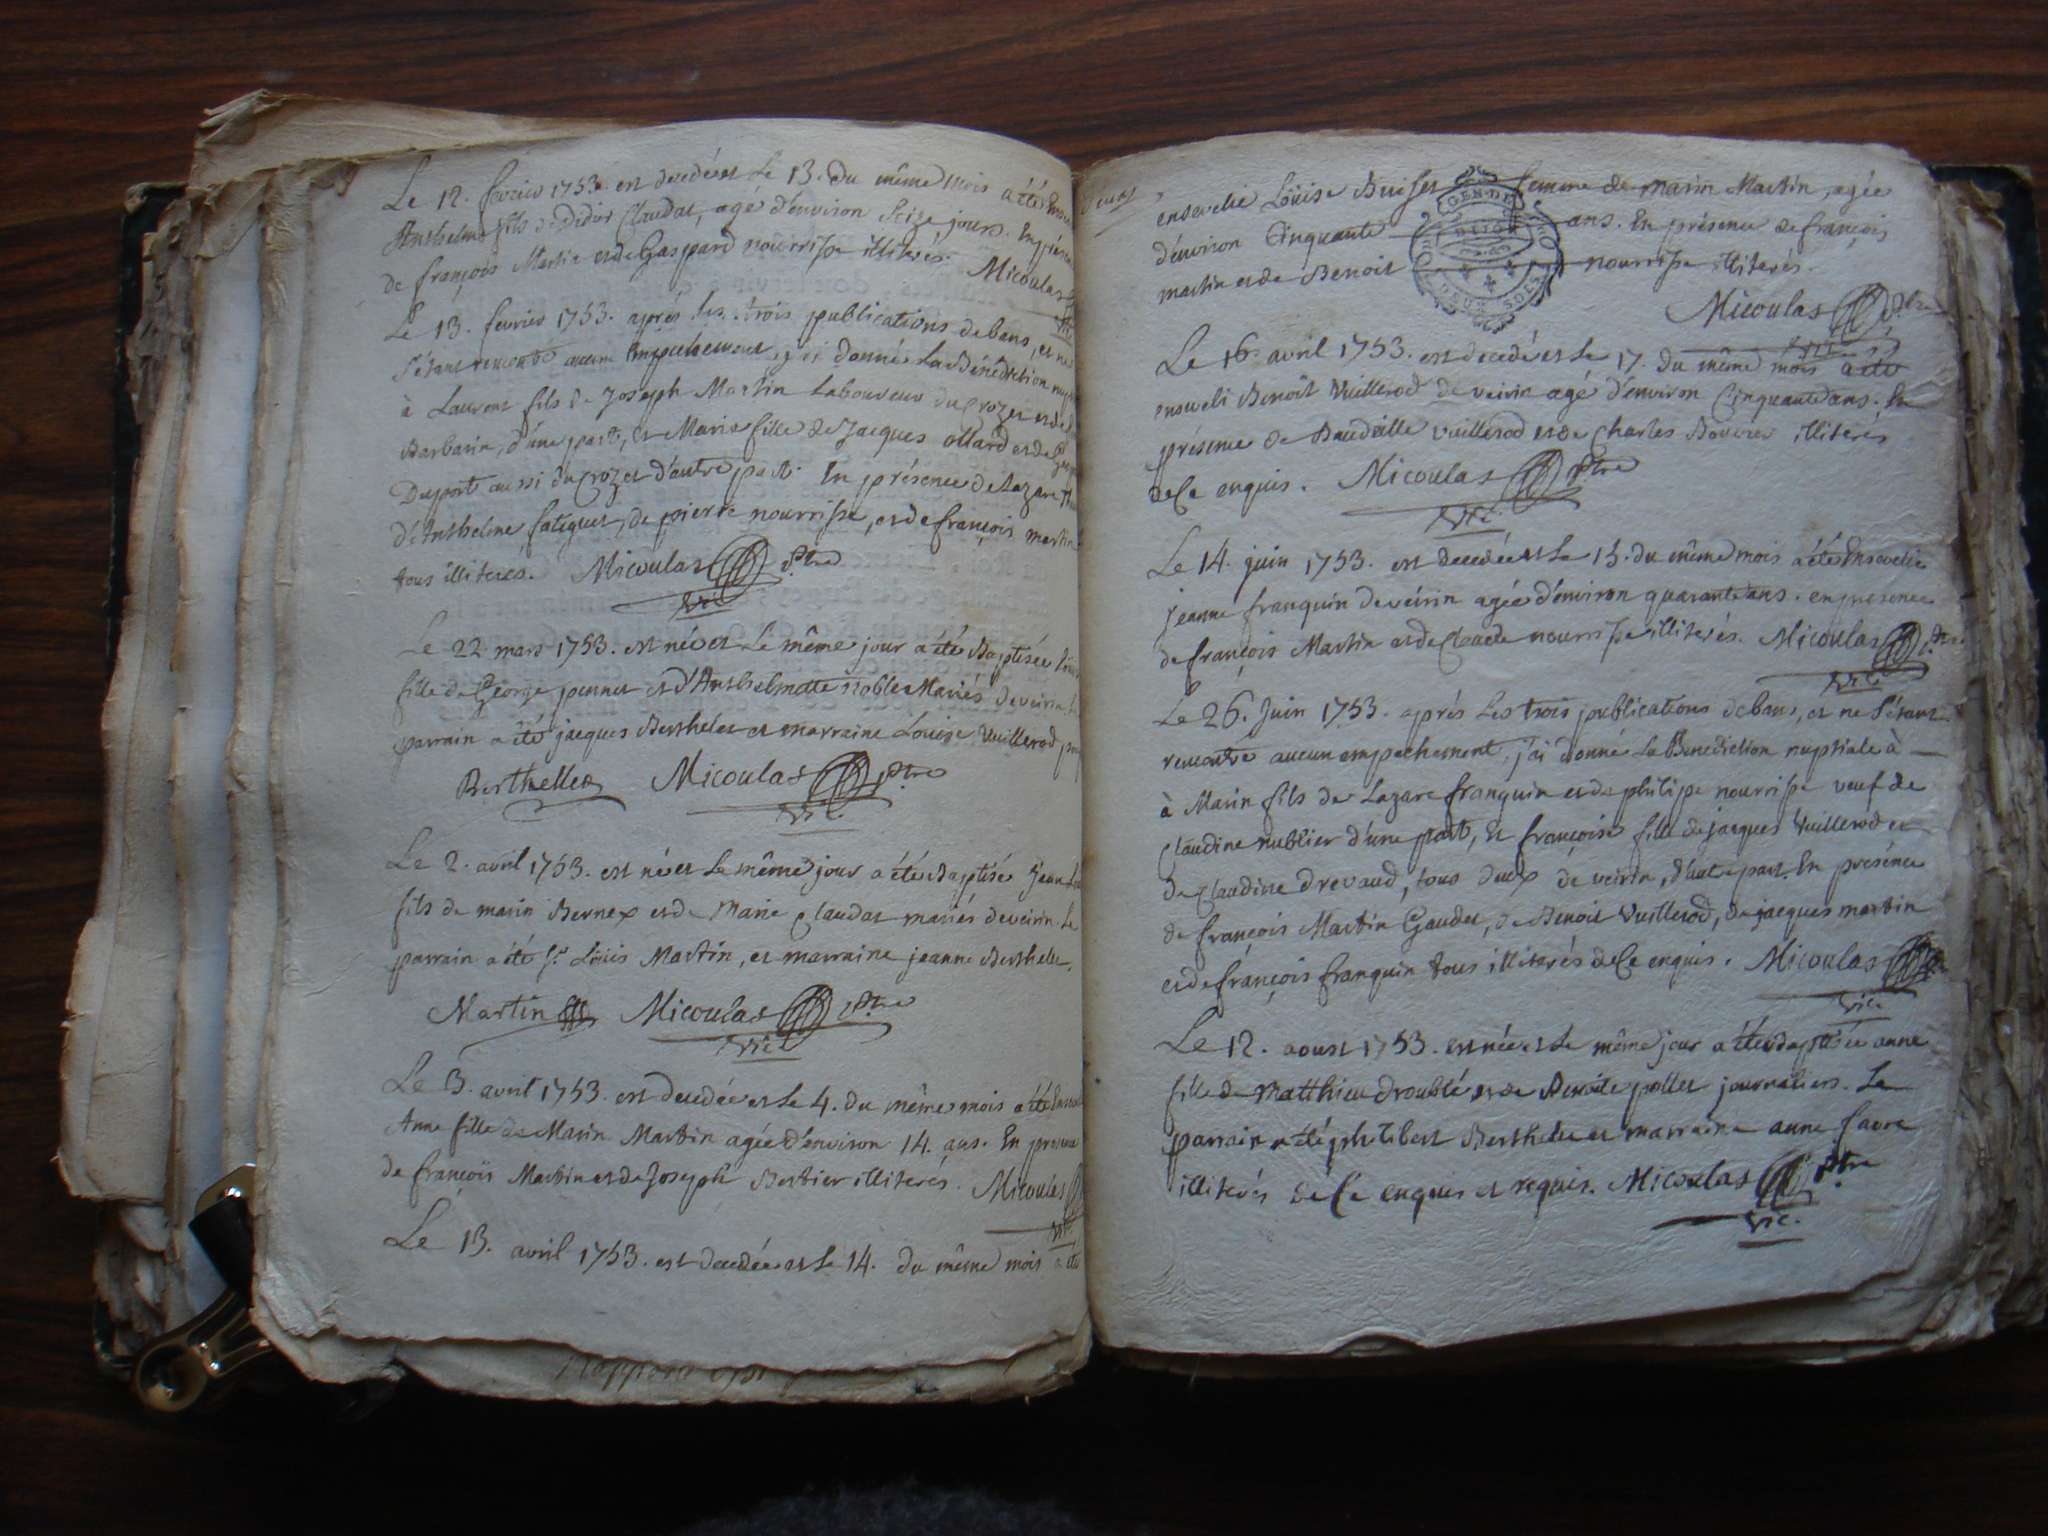 Le 12. fevrier 1753. est decedé et Le 13. du même mois a été
Anthelme fils de Didier Claudat, agé d'environ Seize jours. En
de françois Martin et de Gaspard nourrisse illiterés. Micoulas
Le 13. fevrier 1753. aprés les trois publications de bans, et ne
S'étant rencontré aucun Empechement, j'ai donné La Bénédiction
à Laurent fils de Joseph Martin Laboureur du Crozet et de
Barbarin, d'une part, et Marie fille de Jacques ollard et de
Duport aussi du Crozet d'autre part. En présence de Lazare
d'Anthelme fatiguet, de pierre nourrisse, et de françois martin
tous illiteres. Micoulas Ptre
vic.
Le 22 mars 1753. est née et Le même jour a été Baptisée
fille de George pennet et d'Anthelmette noble Mariés de veirin
parrain a été jacques Berthelet et marraine Louise Vuillerod
Berthellet Micoulas Ptre
vic.
Le 2. avril 1753. est né et Le même jour a été Baptisé Jean
fils de marin Bernex et de Marie Claudat mariés de veirin. Le
parrain a été Sr. Loüis Martin, et marraine jeanne Berthelet.
Martin Micoulas Ptre
vic.
Le 3. avril 1753. est decedée et Le 4. du même mois a été
Anne fille de Marin Martin agée d'environ 14. ans. En presence
de françois Martin et de Joseph Bertier illiterés. Micoulas
vic.
Le 13. avril 1753. est decedée et Le 14. du même mois a été
ensevelie Loüise Buisset femme de Marin Martin, agée
d'environ Cinquante ans. En présence de françois
martin et de Benoit nourrisse illiterés.
GEN DE DIJON
Micoulas Ptre
vic.
Le 16. avril 1753. est decedé et Le 17. du même mois a été
enseveli Benoît Vuillerod de veirin agé d'environ Cinquante ans. En
présence de Baudille vuillerod et de Charles Bouvier illiterés
de Ce enquis. Micoulas Ptre
vic.
Le 14. juin 1753. est decedée et Le 15. du même mois a été Ensevelie
jeanne franquin de veirin agée d'environ quarante ans. en presence
de françois Martin et de Claude nourrisse illiterés. Micoulas Ptre
vic.
Le 26. Juin 1753. aprés Les trois publications de bans, et ne S'étant
rencontré aucun empechement, j'ai donné La Benediction nuptiale à
à Marin fils de Lazare franquin et de philipe nourrisse veuf de
Claudine nublier d'une part, et françoise fille de jacques Vuillerod et
de Claudine drevaud, tous deux de veirin, d'autre part. En presénce
de françois Martin Gaudet, de Benoit Vuillerod, de jacques martin
et de françois franquin tous illiterés de Ce enquis. Micoulas
vic.
Le 12. aoust 1753. est née et Le même jour a été Baptisée anne
fille de Matthieu droublé et de Benoite pollet journaliers. Le
parrain a été philibert Berthelet et marraine anne favre
illiterés de Ce enquis et requis. Micoulas Ptre
vic.